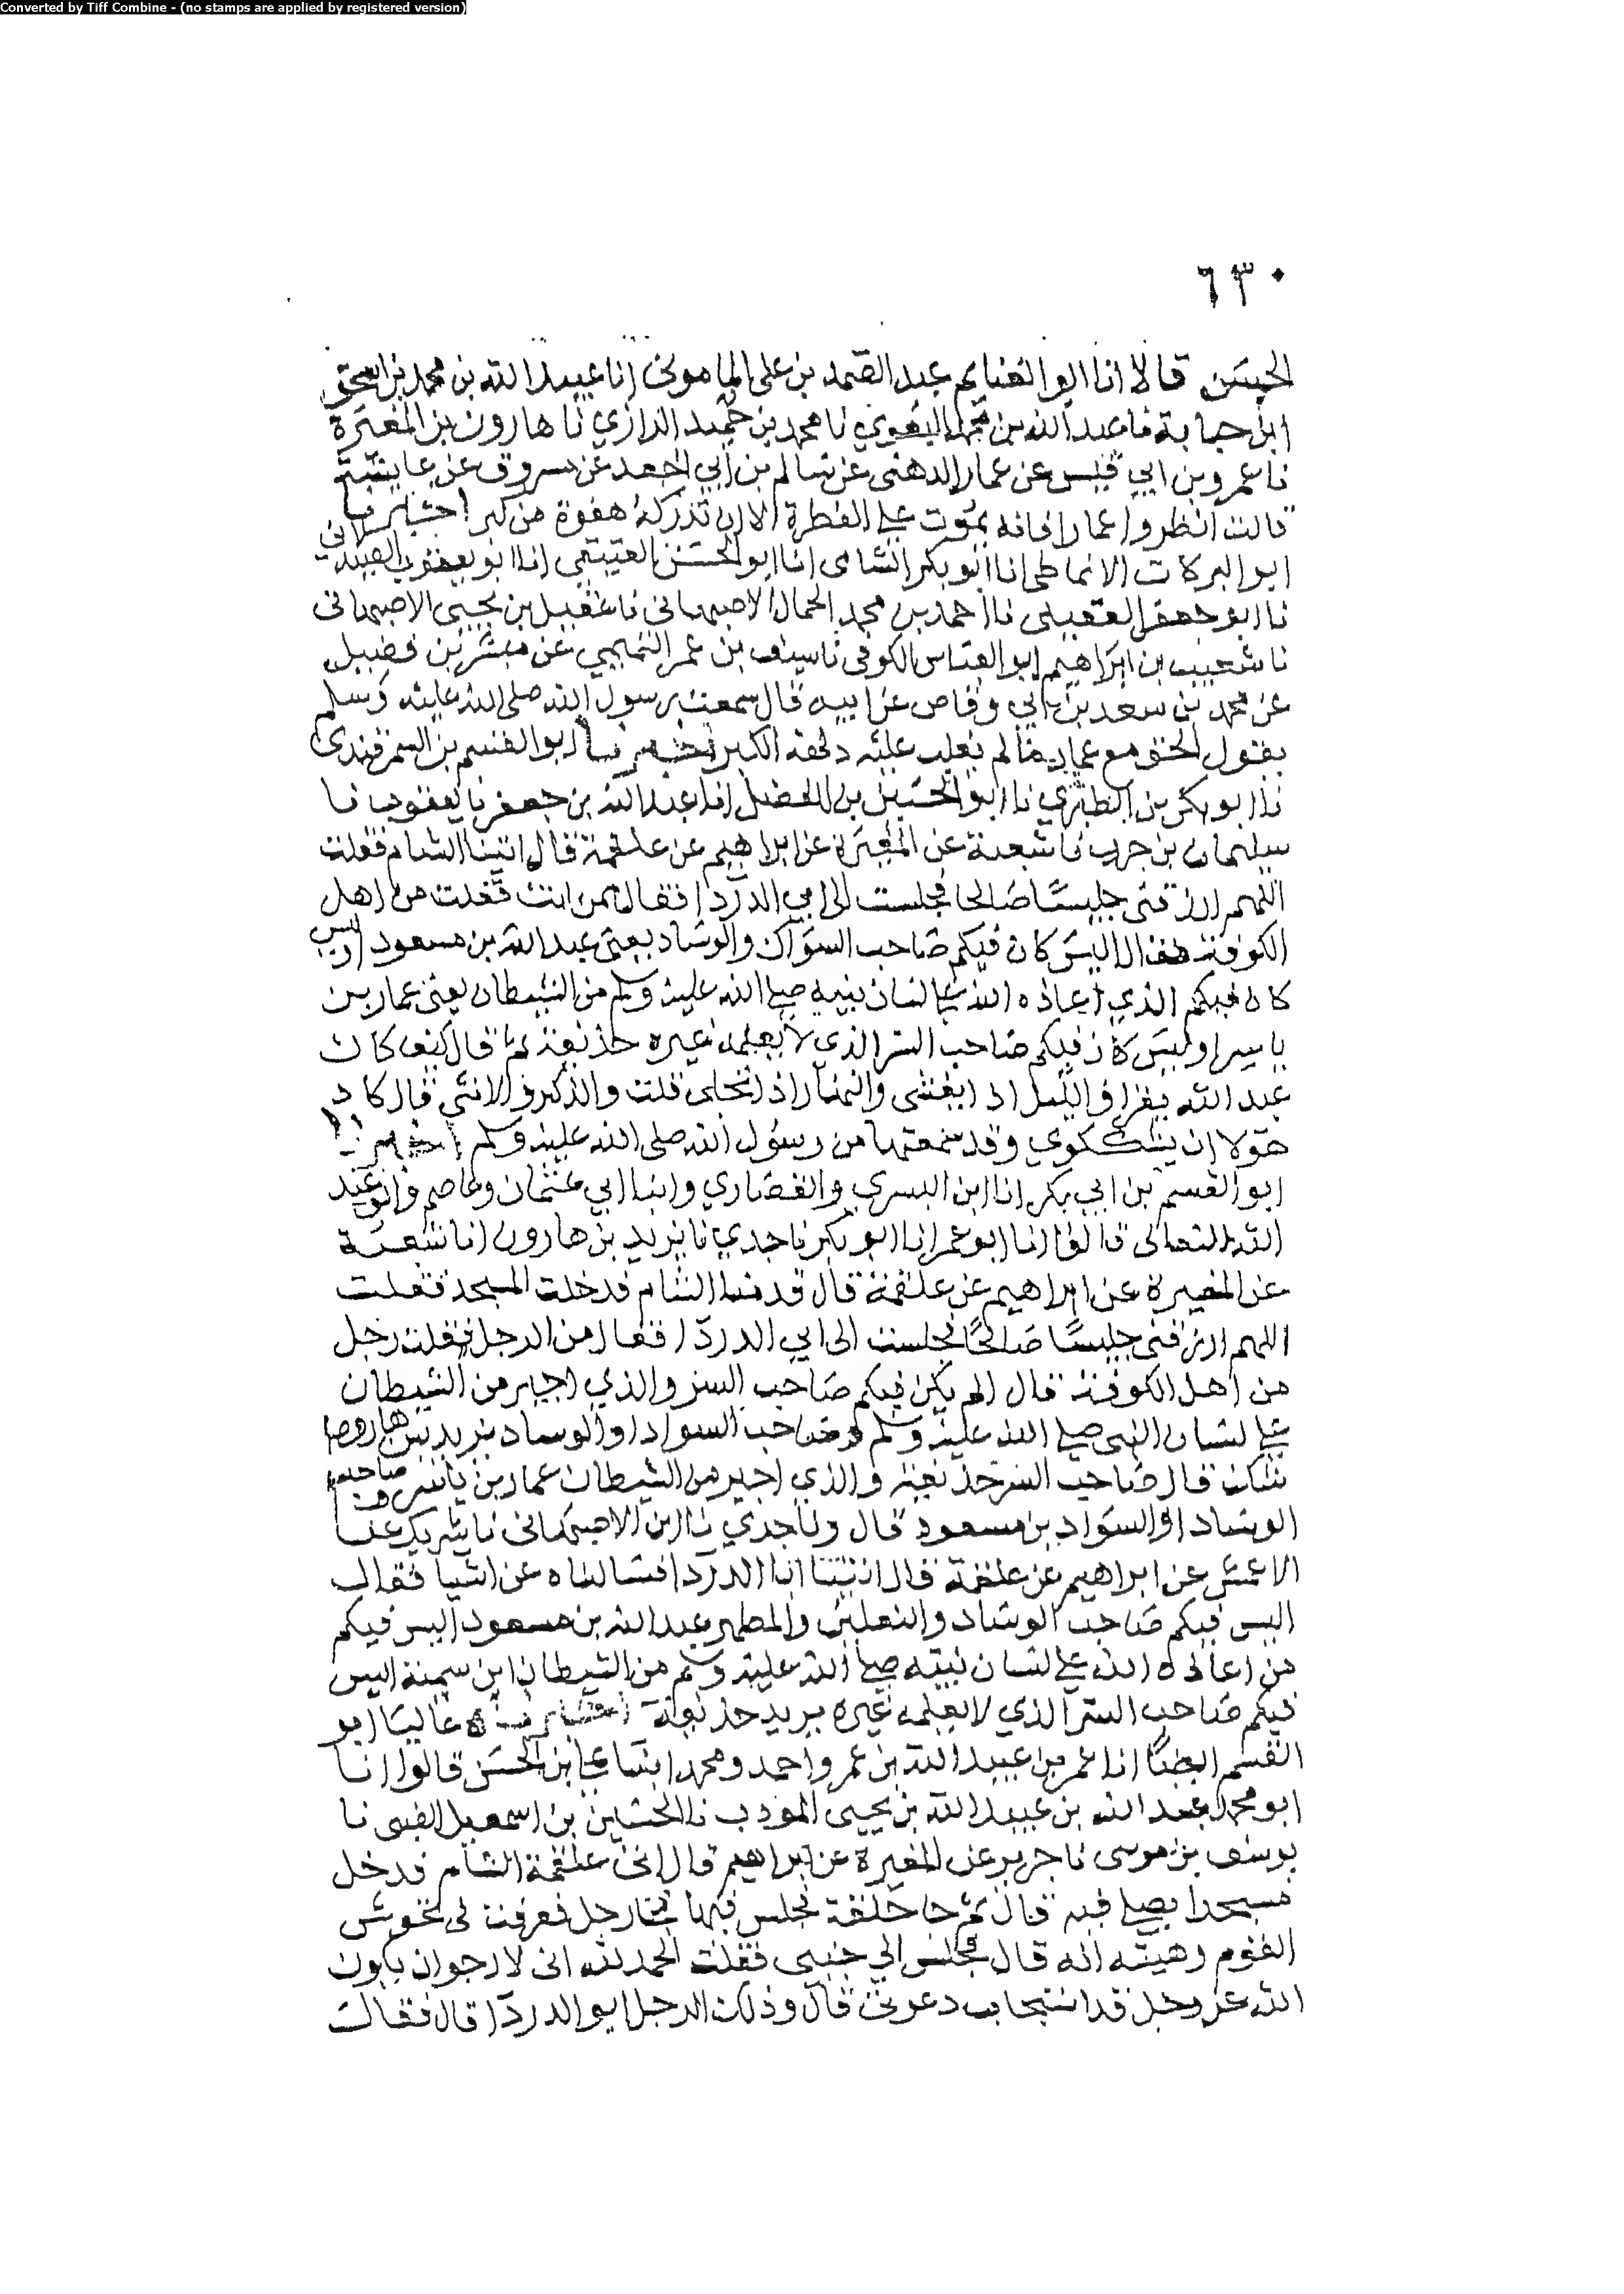 Converted by Tiff Combine - (no stamps are applied by registered version)
٦٣٠
الحسن قالا انا ابو الغنايم عبد الصمد بن على المامونى انا عبيد الله بن محمد بن اسحق
ابن حبابة نا عبد الله بن محمد البغوي نا محمد بن حميد الرازي نا هارون بن المغيرة
نا عمرو بن ابي قيس عن عمار الدهنى عن سالم بن ابي الجعد عن مسروق عن عايشة
قالت انظروا عمارا فانه يموت على الفطرة الا ان تدركه هفوة من كبر اخبرنا
ابو البركات الانماطى انا ابو بكر الشامى انا ابو الحسن العتيقي انا ابو يعقوب الصيدلانى
نا ابو جعفر العقيلى نا احمد بن محمد الحمال الاصبهانى نا عقيل بن يحيى الاصبهانى
نا شعيب بن ابراهيم ابو العباس الكوفى نا سيف بن عمر التميمي عن مبشر بن فضيل
عن محمد بن سعد بن ابي وقاص عن ابيه قال سمعت رسول الله صلى الله عليه وسلم
يقول الحق مع عمار ما لم تغلب عليه دلهة الكبر اخبرنا ابو القسم بن السمرقندى
نا ابو بكر بن الطبري نا ابو الحسين بن الفضل انا عبد الله بن جعفر نا يعقوب نا
سليمان بن حرب نا شعبة عن المغيرة عن ابراهيم عن علقمة قال اتينا الشام فقلت
اللهم ارزقنى جليسا صالحا فجلست الى ابي الدردا فقال ممن انت فقلت من اهل
الكوفة فقال اليس كان فيكم صاحب السواك والوساد يعنى عبد الله بن مسعود اوليس
كان فيكم الذي اعاذه الله على لسان نبيه صلى الله عليه وسلم من الشيطان يعنى عمار بن
ياسر اوليس كان فيكم صاحب السر الذي لا يعلمه غيره حذيفة ثم قال كيف كان
عبد الله يقرا والليل اذا يغشى والنهار اذا تجلى قلت والذكر والانثى قال كاد
هولا ان يشككوي وقد سمعتها من رسول الله صلى الله عليه وسلم اخبرنا
ابو القسم بن ابي بكر انا ابن البسري والقصاري وابنا ابي عثمان وعاصم وابو عبد
الله النعالى قالوا انا ابو عمر انا ابو بكر نا جدي نا يزيد بن هارون انا شعبة
عن المغيرة عن ابراهيم عن علقمة قال قدمنا الشام فدخلت المسجد فقلت
اللهم ارزقنى جليسا صالحا فجلست الى ابي الدردا فقال من الرجل فقلت رجل
من اهل الكوفة قال الم يكن فيكم صاحب السر والذي اجير من الشيطان
على لسان النبى صلى الله عليه وسلم وصاحب السواد او الوساد يزيد بن هارون
شك قال صاحب السر حذيفة والذي اجير من الشيطان عمار بن ياسر وصاحب
الوساد او السواد بن مسعود قال ونا جدي نا ابن الاصبهانى نا شريك عن
الاعمش عن ابراهيم عن علقمة قال اتيت ابا الدردا فسالناه عن اشيا فقال
اليس فيكم صاحب الوساد والنعلين والمطهر عبد الله بن مسعود اليس فيكم
من اعاذه الله على لسان نبيه صلى الله عليه وسلم من الشيطان ابن سمية اليس
فيكم صاحب السر الذي لا يعلمه غيره يريد حذيفة اخبرناه عاليا ابو
القسم ايضا انا عمر بن عبيد الله بن عمر واحمد ومحمد ابنا على ابن الحسن قالوا انا
ابو محمد عبد الله بن عبيد الله بن يحيى المودب نا الحسين بن اسمعيل الضبى نا
يوسف بن موسى نا جرير عن المغيرة عن ابراهيم قال اتى علقمة الشام فدخل
مسجدا يصلى فيه قال ثم جا حلقة فجلس فيها فجا رجل فعرفت لى تحوش
القوم وهيته انه قال فجلس الى جنبى فقلت الحمد لله انى لارجو ان يكون
الله عز وجل قد استجاب دعوتى قال وذلك الرجل ابو الدردا قال فقال